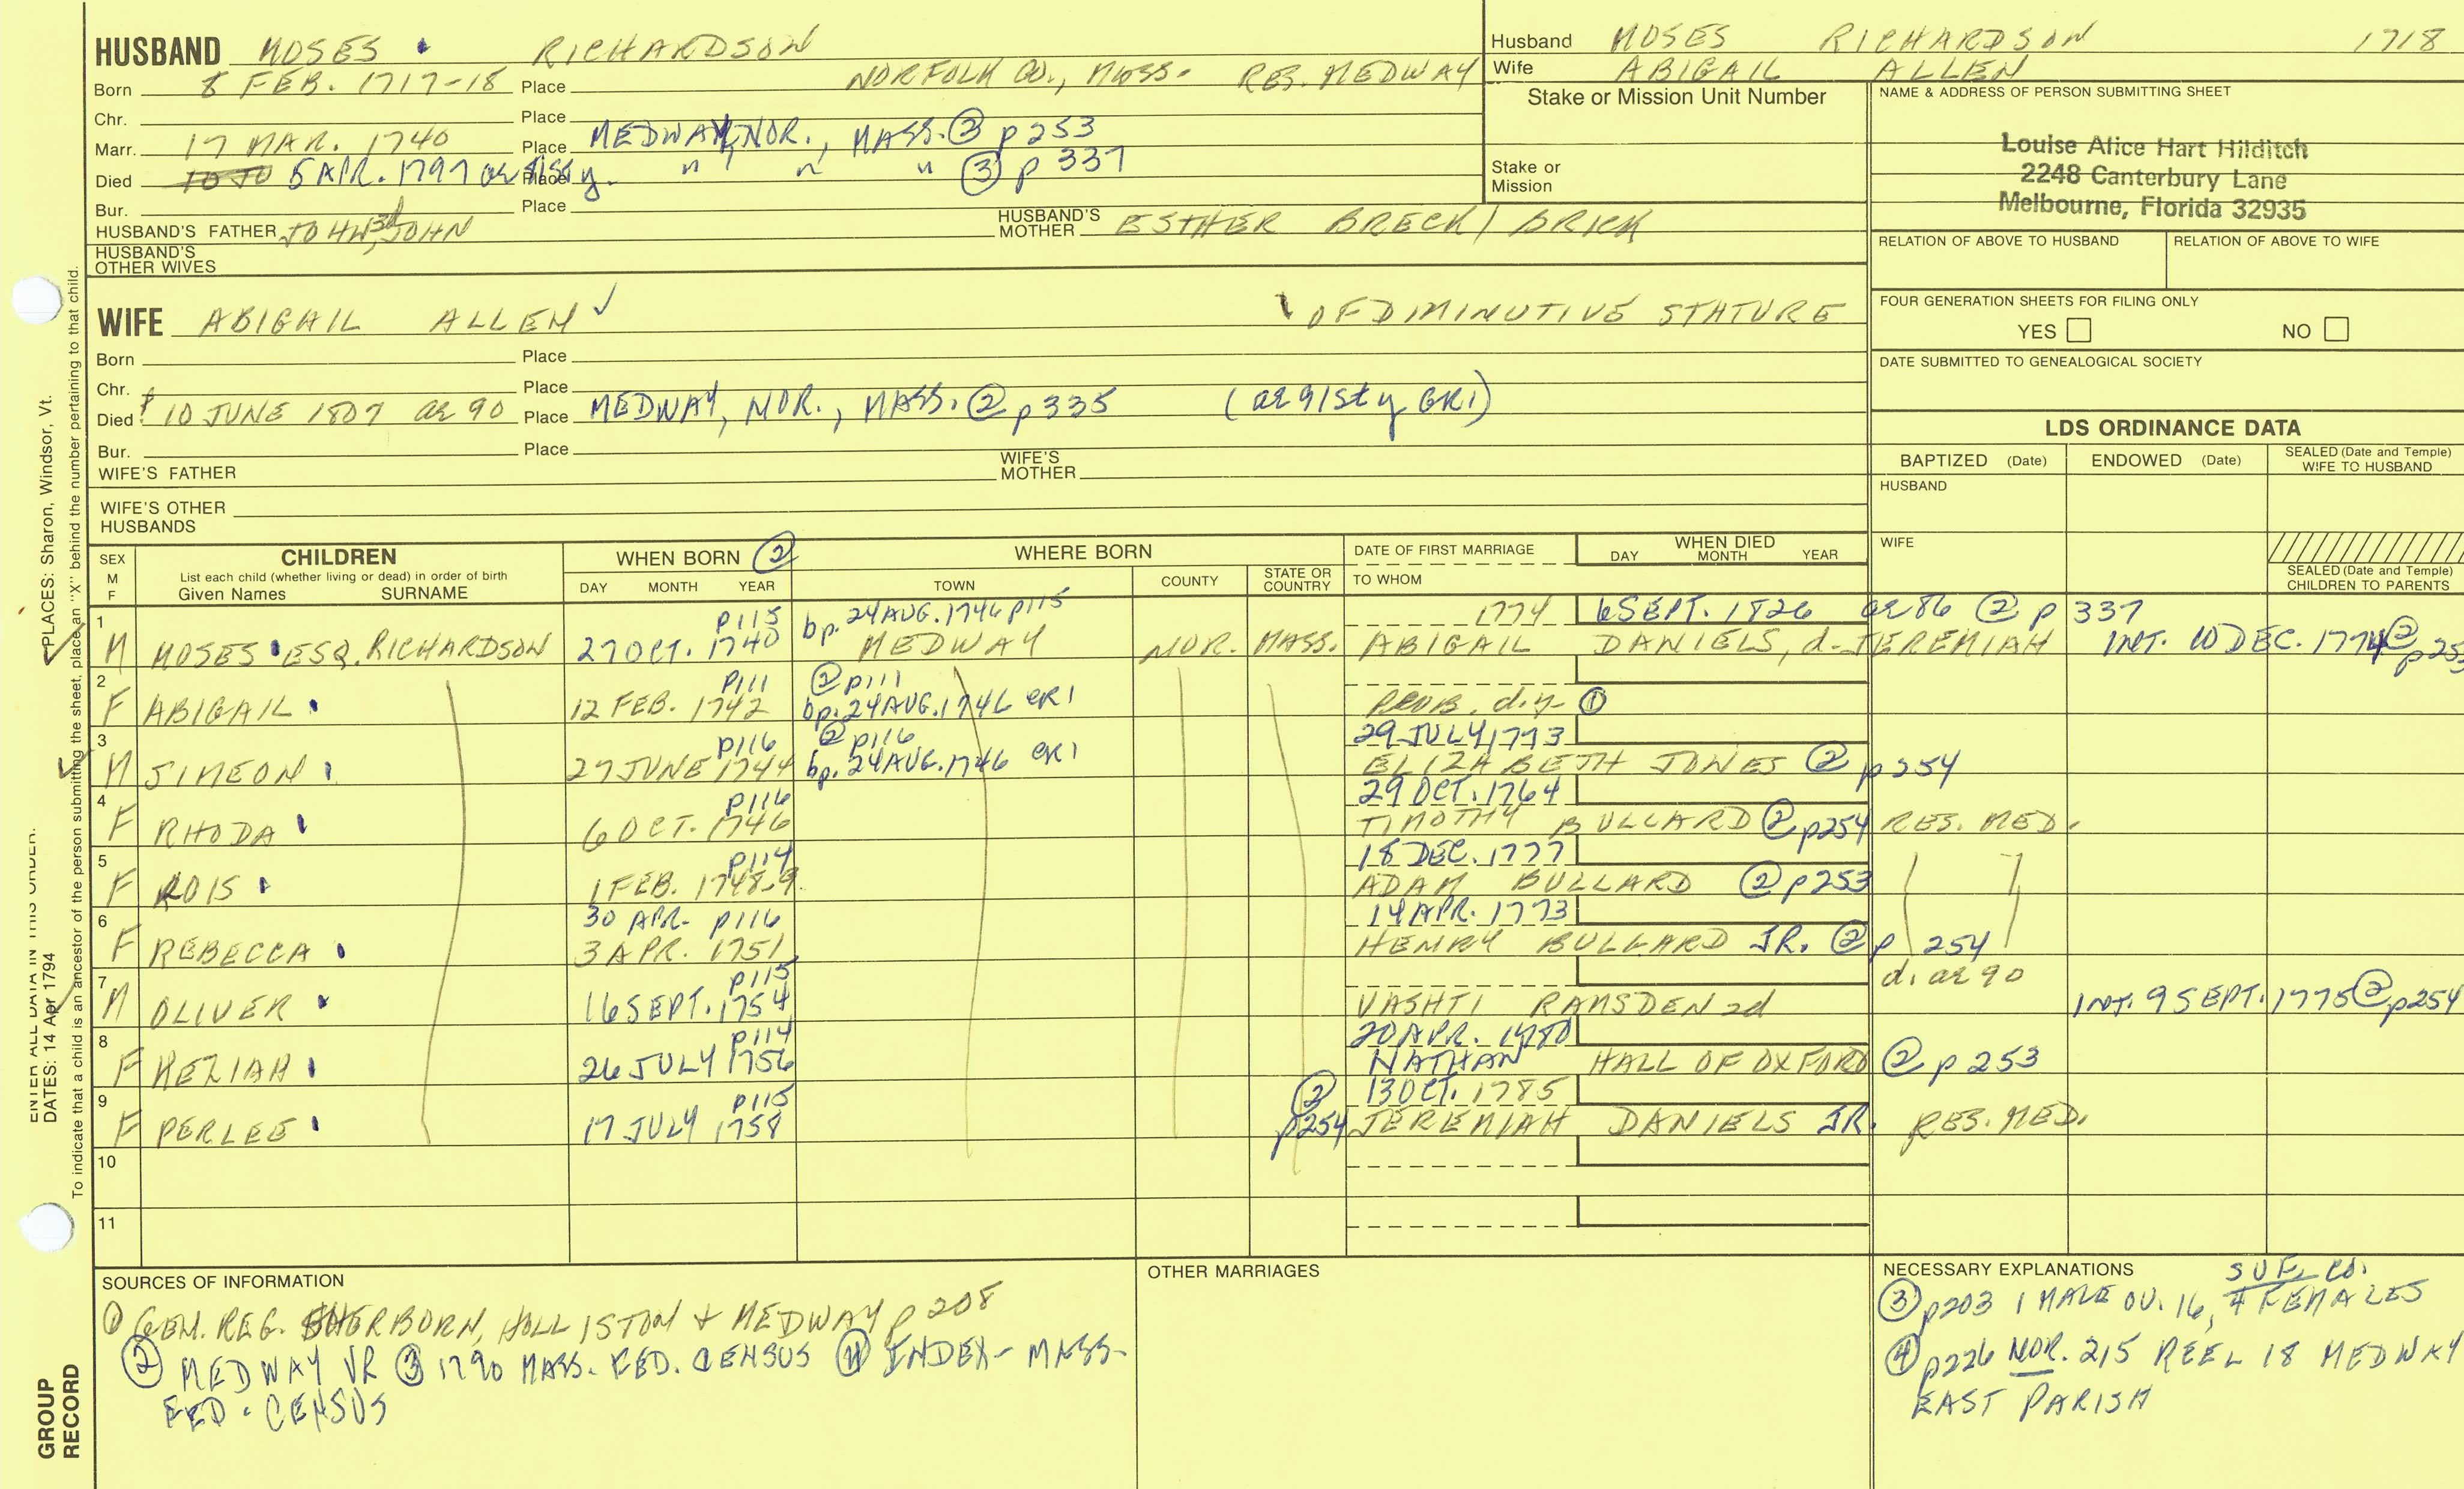 HUSBAND MOSES RICHARDSON
Born 8 FEB. 1717-18 Place NORFOLK CO., MASS. RES. MEDWAY
Chr. Place
Marr. 17 MAR. 1740 Place MEDWAY, NOR., MASS. ③ p253
Died 5 APR. 1797 Place " " " ③ p 337
Bur. Place
HUSBAND'S FATHER JOHN 3d, JOHN HUSBAND'S MOTHER ESTHER BRECK / BRICK
HUSBAND'S OTHER WIVES
Husband MOSES RICHARDSON 1718
Wife ABIGAIL ALLEN
Stake or Mission Unit Number
Stake or Mission
NAME & ADDRESS OF PERSON SUBMITTING SHEET
Louise Alice Hart Hilditch
2248 Canterbury Lane
Melbourne, Florida 32935
RELATION OF ABOVE TO HUSBAND RELATION OF ABOVE TO WIFE
FOUR GENERATION SHEETS FOR FILING ONLY
YES NO
DATE SUBMITTED TO GENEALOGICAL SOCIETY
WIFE ABIGAIL ALLEN OF DIMINUTIVE STATURE
Born Place
Chr. Place
Died 10 JUNE 1807 ae 90 Place MEDWAY, NOR., MASS. ② p335 (ae 91st y GR1)
Bur. Place
WIFE'S FATHER WIFE'S MOTHER
WIFE'S OTHER HUSBANDS
LDS ORDINANCE DATA
BAPTIZED (Date) ENDOWED (Date) SEALED (Date and Temple) WIFE TO HUSBAND
HUSBAND
WIFE
SEALED (Date and Temple) CHILDREN TO PARENTS
SEX M F
CHILDREN
List each child (whether living or dead) in order of birth
Given Names SURNAME
WHEN BORN ②
DAY MONTH YEAR
WHERE BORN
TOWN COUNTY STATE OR COUNTRY
DATE OF FIRST MARRIAGE
TO WHOM
WHEN DIED
DAY MONTH YEAR
1 P115 bp. 24 AUG. 1746 p115 1774 6 SEPT. 1826 ae 86 ② p 337
M MOSES ESQ. RICHARDSON 27 OCT. 1740 MEDWAY NOR. MASS. ABIGAIL DANIELS, d. JEREMIAH INT. 10 DEC. 1774 ② p253
2 P111 ② p111
F ABIGAIL 12 FEB. 1742 bp. 24 AUG. 1746 CR1 PROB. d.y. ①
3 P116 ② p116 29 JULY 1773
M SIMEON 27 JUNE 1744 bp. 24 AUG. 1746 CR1 ELIZABETH JONES ② p254
4 P116 29 OCT. 1764
F RHODA 6 OCT. 1746 TIMOTHY BULLARD ② p254 RES. MED.
5 P114 18 DEC. 1777
F ROIS 1 FEB. 1748-9 ADAM BULLARD ② p253
6 30 APR. P116 14 APR. 1773
F REBECCA 3 APR. 1751 HENRY BULLARD JR. ② p 254
7 P115 d. ae 90
M OLIVER 16 SEPT. 1754 VASHTI RAMSDEN 2d INT. 9 SEPT. 1775 ② p254
8 P114 20 APR. 1780
F KEZIAH 26 JULY 1756 NATHAN HALL OF OXFORD ② p 253
9 P115 ② 13 OCT. 1785
F PERLEE 17 JULY 1758 p254 JEREMIAH DANIELS JR. RES. MED.
10
11
SOURCES OF INFORMATION
① GEN. REG. SHERBORN, HOLLISTON & MEDWAY p 208
② MEDWAY VR ③ 1790 MASS. FED. CENSUS ④ INDEX - MASS.
FED. CENSUS
OTHER MARRIAGES
NECESSARY EXPLANATIONS SUF. CO.
③ p203 1 MALE OV. 16, 4 FEMALES
④ p226 NOR. 215 REEL 18 MEDWAY
EAST PARISH
PLACES: Sharon, Windsor, Vt.
ENTER ALL DATA IN THIS ORDER:
DATES: 14 Apr 1794
To indicate that a child is an ancestor of the person submitting the sheet, place an "X" behind the number pertaining to that child.
GROUP RECORD